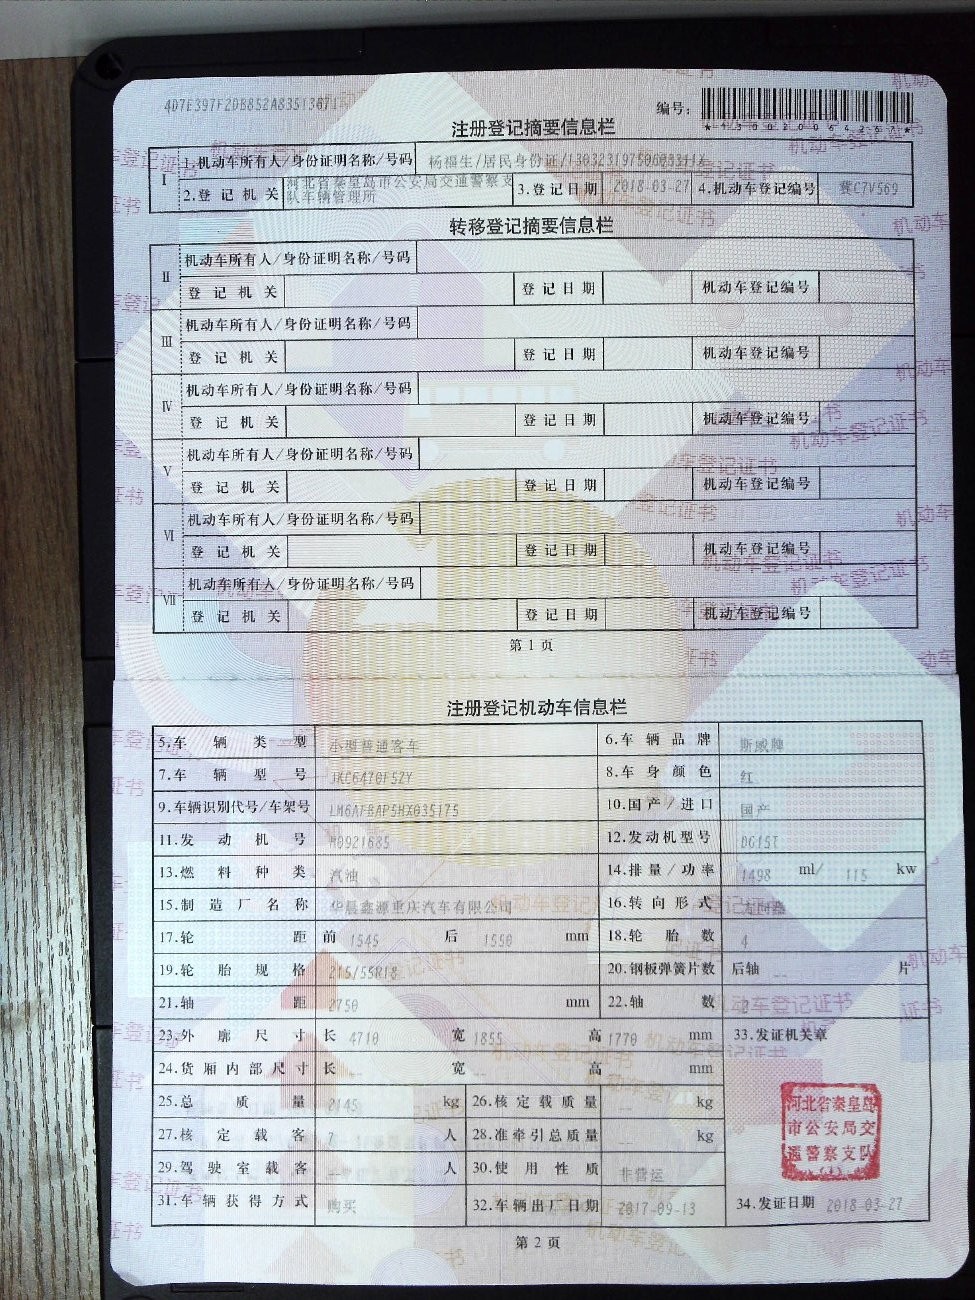 4D7E397F2DB852A83513671
编号:
*130020064267*
注册登记摘要信息栏
I
1.机动车所有人/身份证明名称/号码 杨福生/居民身份证/
2.登记机关 河北省秦皇岛市公安局交通警察支队车辆管理所 3.登记日期 2018-03-27 4.机动车登记编号 冀C7V569
转移登记摘要信息栏
II 机动车所有人/身份证明名称/号码
登记机关 登记日期 机动车登记编号
III 机动车所有人/身份证明名称/号码
登记机关 登记日期 机动车登记编号
IV 机动车所有人/身份证明名称/号码
登记机关 登记日期 机动车登记编号
V 机动车所有人/身份证明名称/号码
登记机关 登记日期 机动车登记编号
VI 机动车所有人/身份证明名称/号码
登记机关 登记日期 机动车登记编号
VII 机动车所有人/身份证明名称/号码
登记机关 登记日期 机动车登记编号
第1页
注册登记机动车信息栏
5.车辆类型 小型普通客车 6.车辆品牌 斯威牌
7.车辆型号 JKC6470F5ZY 8.车身颜色 红
9.车辆识别代号/车架号 LM6AFBAP5HX035175 10.国产/进口 国产
11.发动机号 H0921685 12.发动机型号 DG15T
13.燃料种类 汽油 14.排量/功率 1498 ml/ 115 kw
15.制造厂名称 华晨鑫源重庆汽车有限公司 16.转向形式 方向盘
17.轮距 前 1545 后 1550 mm 18.轮胎数 4
19.轮胎规格 215/55R18 20.钢板弹簧片数 后轴 -- 片
21.轴距 2750 mm 22.轴数 2
23.外廓尺寸 长 4710 宽 1855 高 1770 mm 33.发证机关章
24.货厢内部尺寸 长 -- 宽 -- 高 -- mm
25.总质量 2145 kg 26.核定载质量 -- kg
27.核定载客 7 人 28.准牵引总质量 -- kg
29.驾驶室载客 -- 人 30.使用性质 非营运
31.车辆获得方式 购买 32.车辆出厂日期 2017-09-13 34.发证日期 2018-03-27
河北省秦皇岛
市公安局交
通警察支队
(1)
第2页